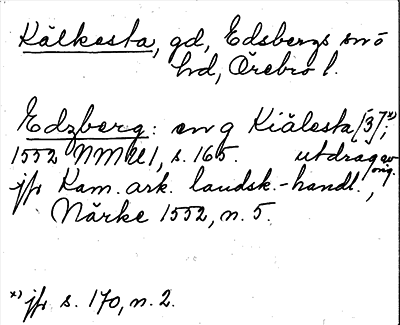 Kälkesta, gd, Edsbergs sn o
hd, Örebro l.
Edzberg: en g Kiälesta [3]*);
1552 NMU 1, s. 165. utdrag av orig.
jfr Kam. ark. landsk.-handl.,
Närke 1552, n. 5.
*) jfr s. 170, n. 2.